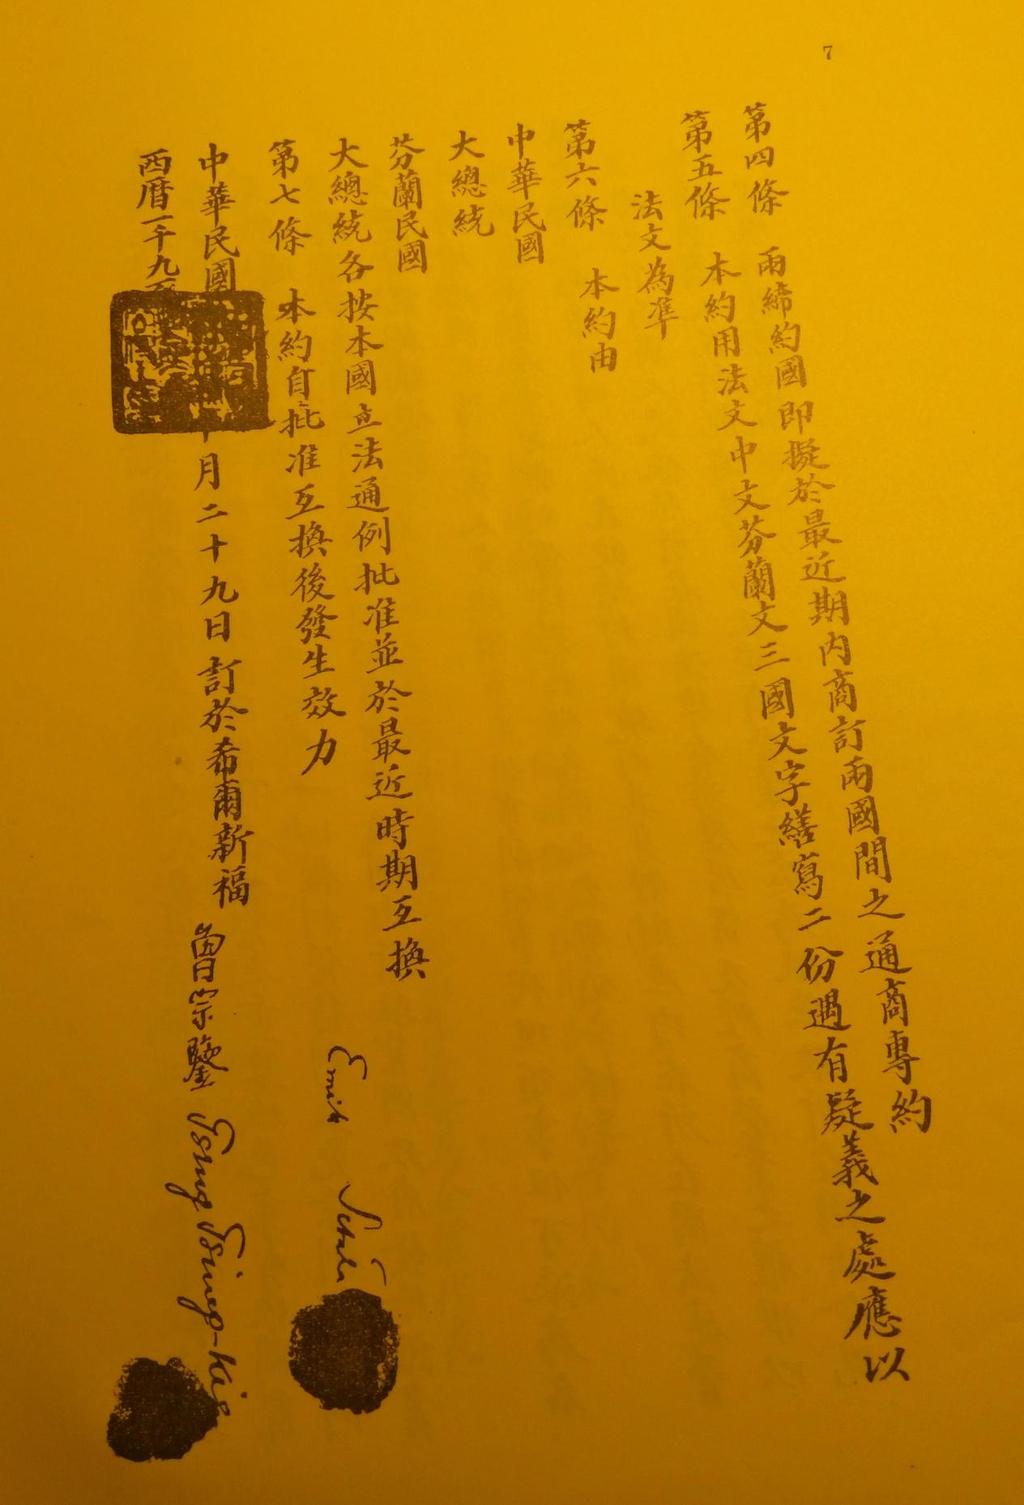 7
第四條 兩締約國即擬於最近期內商訂兩國間之通商專約
第五條 本約用法文中文芬蘭文三國文字繕寫二份遇有疑義之處應以
法文為準
第六條 本約由
中華民國
大總統
芬蘭民國
大總統各按本國立法通例批准並於最近時期互換
第七條 本約自批准互換後發生效力
中華民國 十月二十九日訂於希爾新福
西曆一千九百
曾宗鑒 Tsing-Kie
Emil